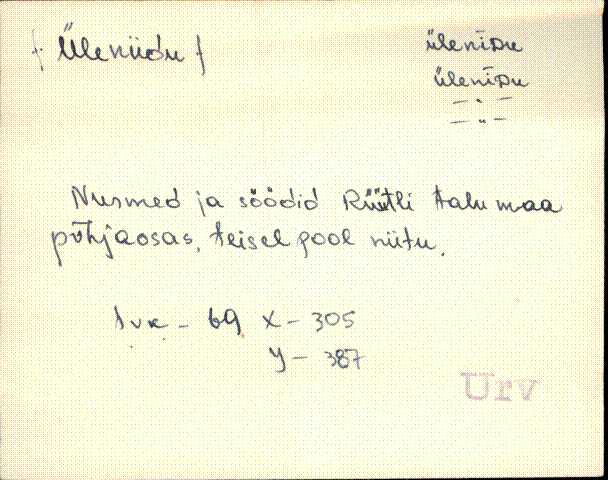 { Üleniidu }
ülenīDu
ülenīDu
— " —
— " —
Nurmed ja söödid Rüütli talu maa
põhjaosas, teisel pool niitu.
69 X – 305
Y – 387
Urv